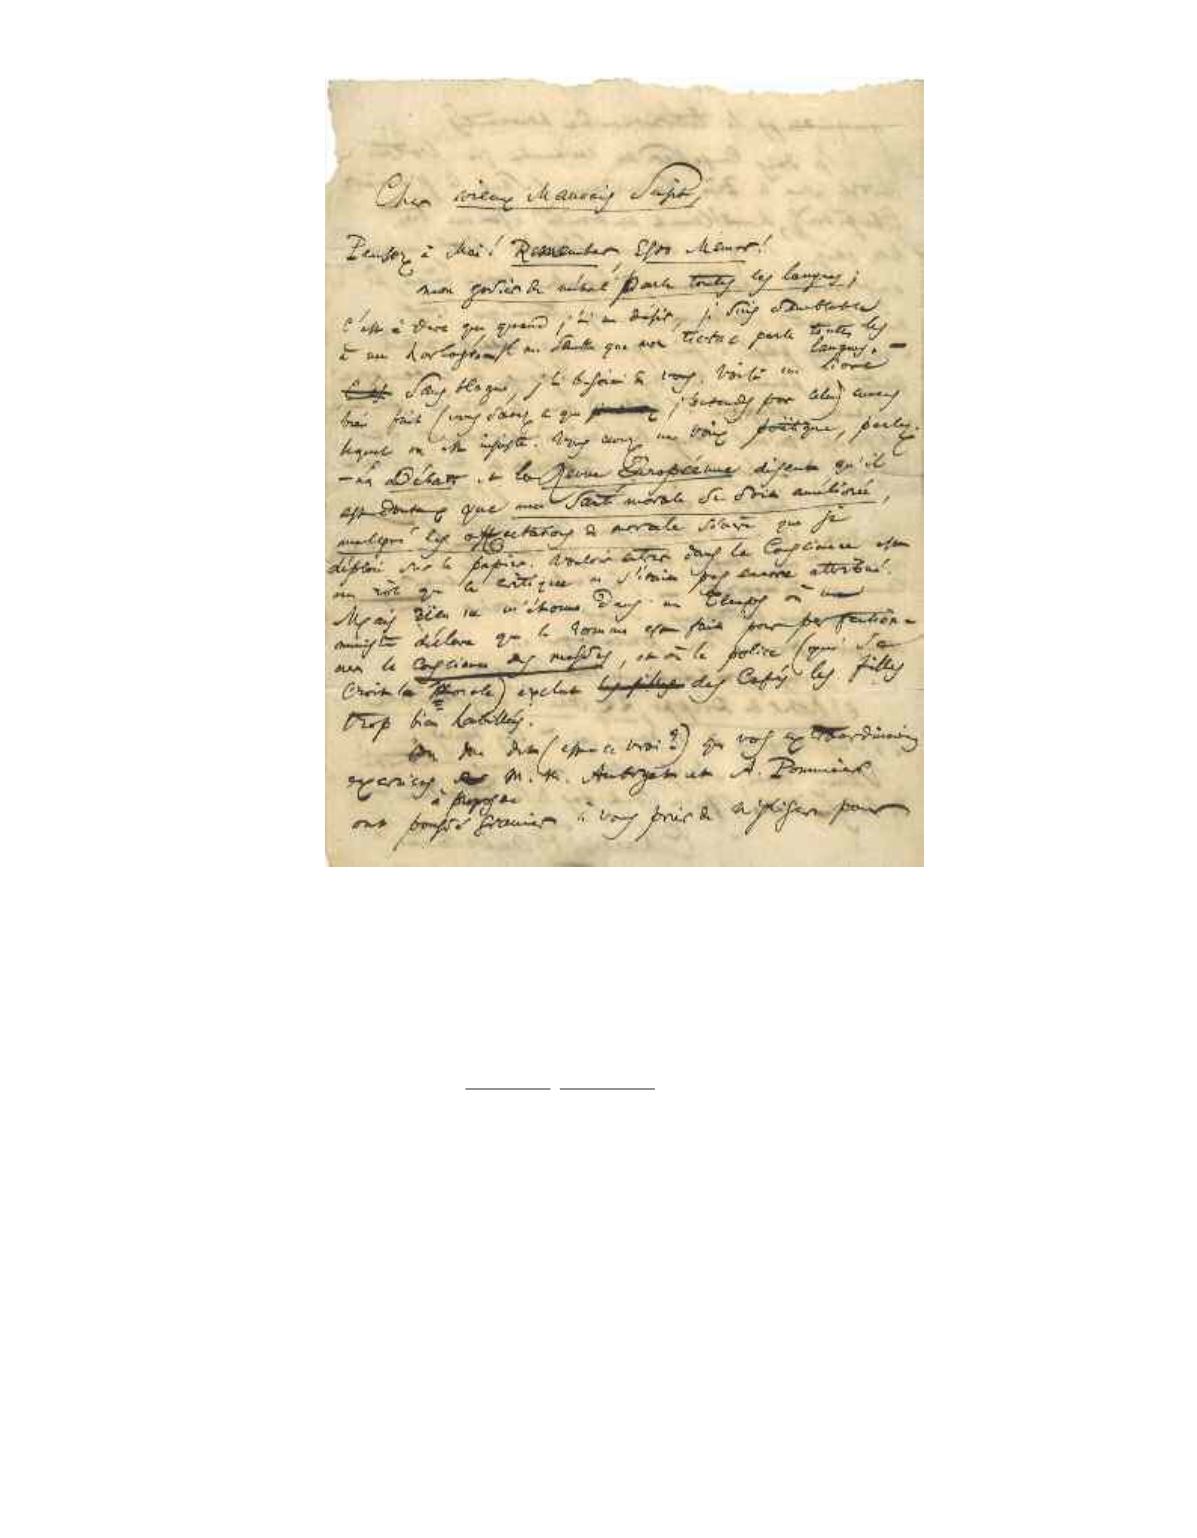 Cher vieux Mauvais Sujet,
Pensez à Moi! Remember Esto Memor!
mon gosier de métal parle toutes les langues;
c'est à dire que quand j'ai un désir, je suis semblable
à un horloge. Il me semble que mon tictac parle toutes les
langues. —
Sans blague, j'ai besoin de vous. Voilà un livre
bien fait (vous savez ce que j'entends par cela) envers
lequel on est injuste. Vous avez une voix poëtique, parlez.
— Les Débats et la Revue Européenne disent qu'il
est douteux que ma santé morale se soit améliorée,
malgré les affectations de morale sévère que je
déploie sur le papier. Vouloir entrer dans la Conscience est
un rôle que la critique ne s'était pas encore attribué.
Mais rien ne m'étonne dans un Temps où un
ministre déclare que le Roman est fait pour perfection-
ner la Conscience des masses, et où la police (qui s'en
croit la Morale) exclut les filles des Cafés les filles
trop bien habillées.
On me dit (est-ce vrai?) que vos extraordinaires
exercices M. X. Aubryet et A. Pommier
à propos de
ont poussé Granier à vous prier de négliger pour